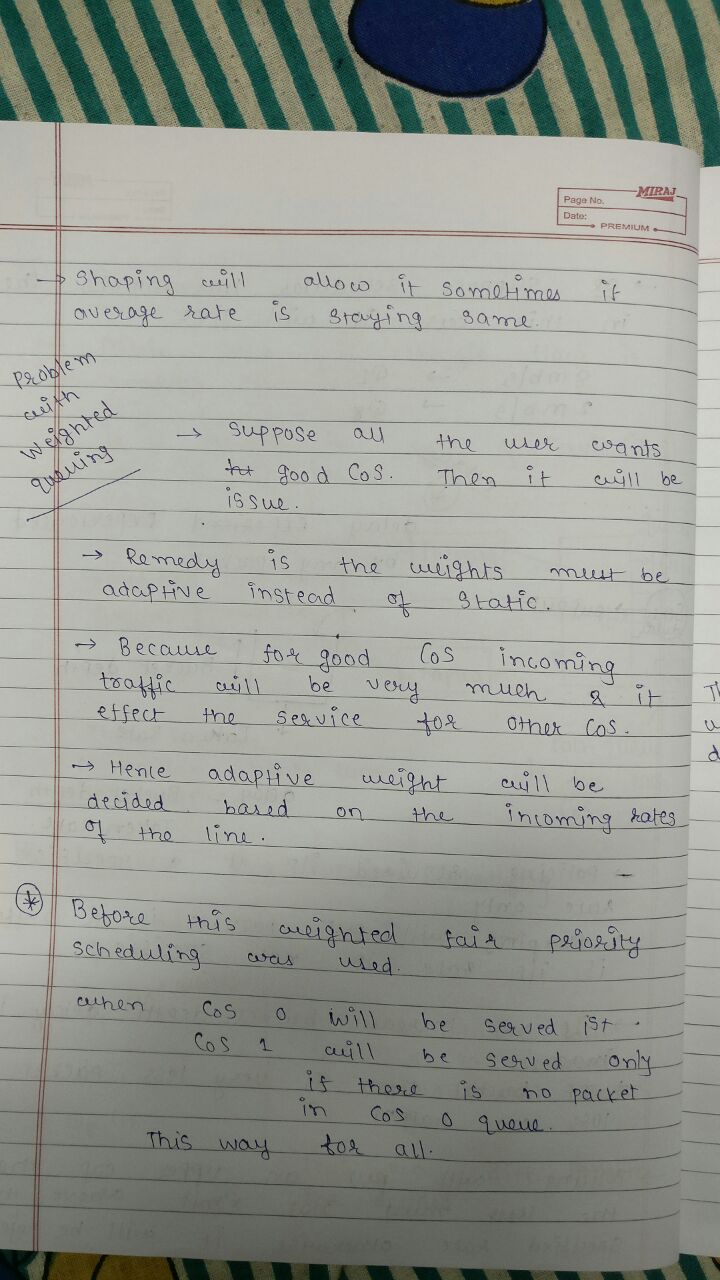 MIRAJ
Page No.
Date:
PREMIUM
→ Shaping will allow it sometimes if
average rate is staying same.
Problem
with
weighted
queuing
→ Suppose all the user wants
good CoS. Then it will be
issue.
→ Remedy is the weights must be
adaptive instead of static.
→ Because for good CoS incoming
traffic will be very much & it
effect the service for other CoS.
→ Hence adaptive weight will be
decided based on the incoming rates
of the line.
* Before this weighted fair priority
scheduling was used.
when CoS 0 will be served 1st.
CoS 1 will be served only
if there is no packet
in CoS 0 queue.
This way for all.